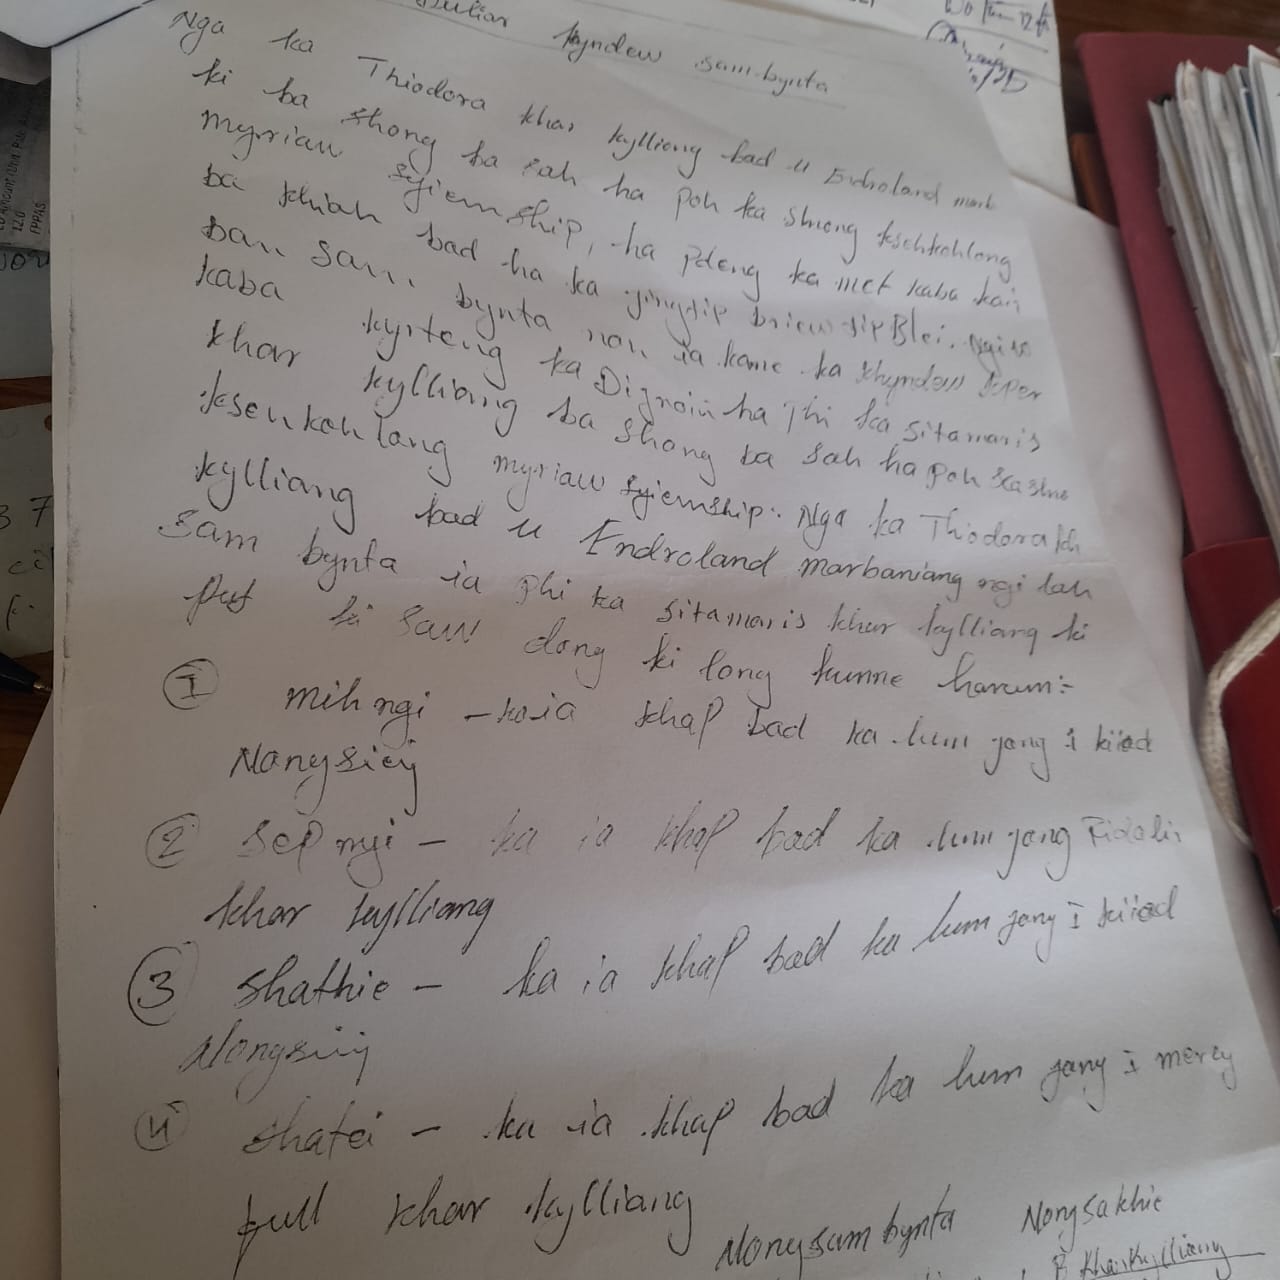 kyndew sam bynta
Nga ka Thiodora khar kylliang bad u Endroland marb
ki ba shong ba sah ha poh ka shnong ksehkohlong
myriaw syiemship, ha pdeng ka met kaba koit
ba khiah bad ha ka jingtip briew tip Blei. Ngi la
ban sam bynta noh ia kane ka khyndew ker
kaba kyrteng ka Digroin ha Phi ka sitamaris
khar kylliang ba shong ba sah ha poh ka shno
ksehkohlang myriaw syiemship. Nga ka Thiodora kh
kylliang bad u Endroland marbaniang ngi lah
sam bynta ia phi ka sitamaris khar kylliang ki
put ki saw dong ki long kumne harum:-
① mihngi - ka ia khap bad ka lum jong i kiiad
Nongsiej
② sepngi - ka ia khap bad ka lum jong Fidalis
khar kylliang
③ shathie - ka ia khap bad ka lum jong i kiiad
Nongsiij
④ shatei - ka ia khap bad ka lum jong i mercy
full khar kylliang
Nongsam bynta Nongsakhie
KharKylliang